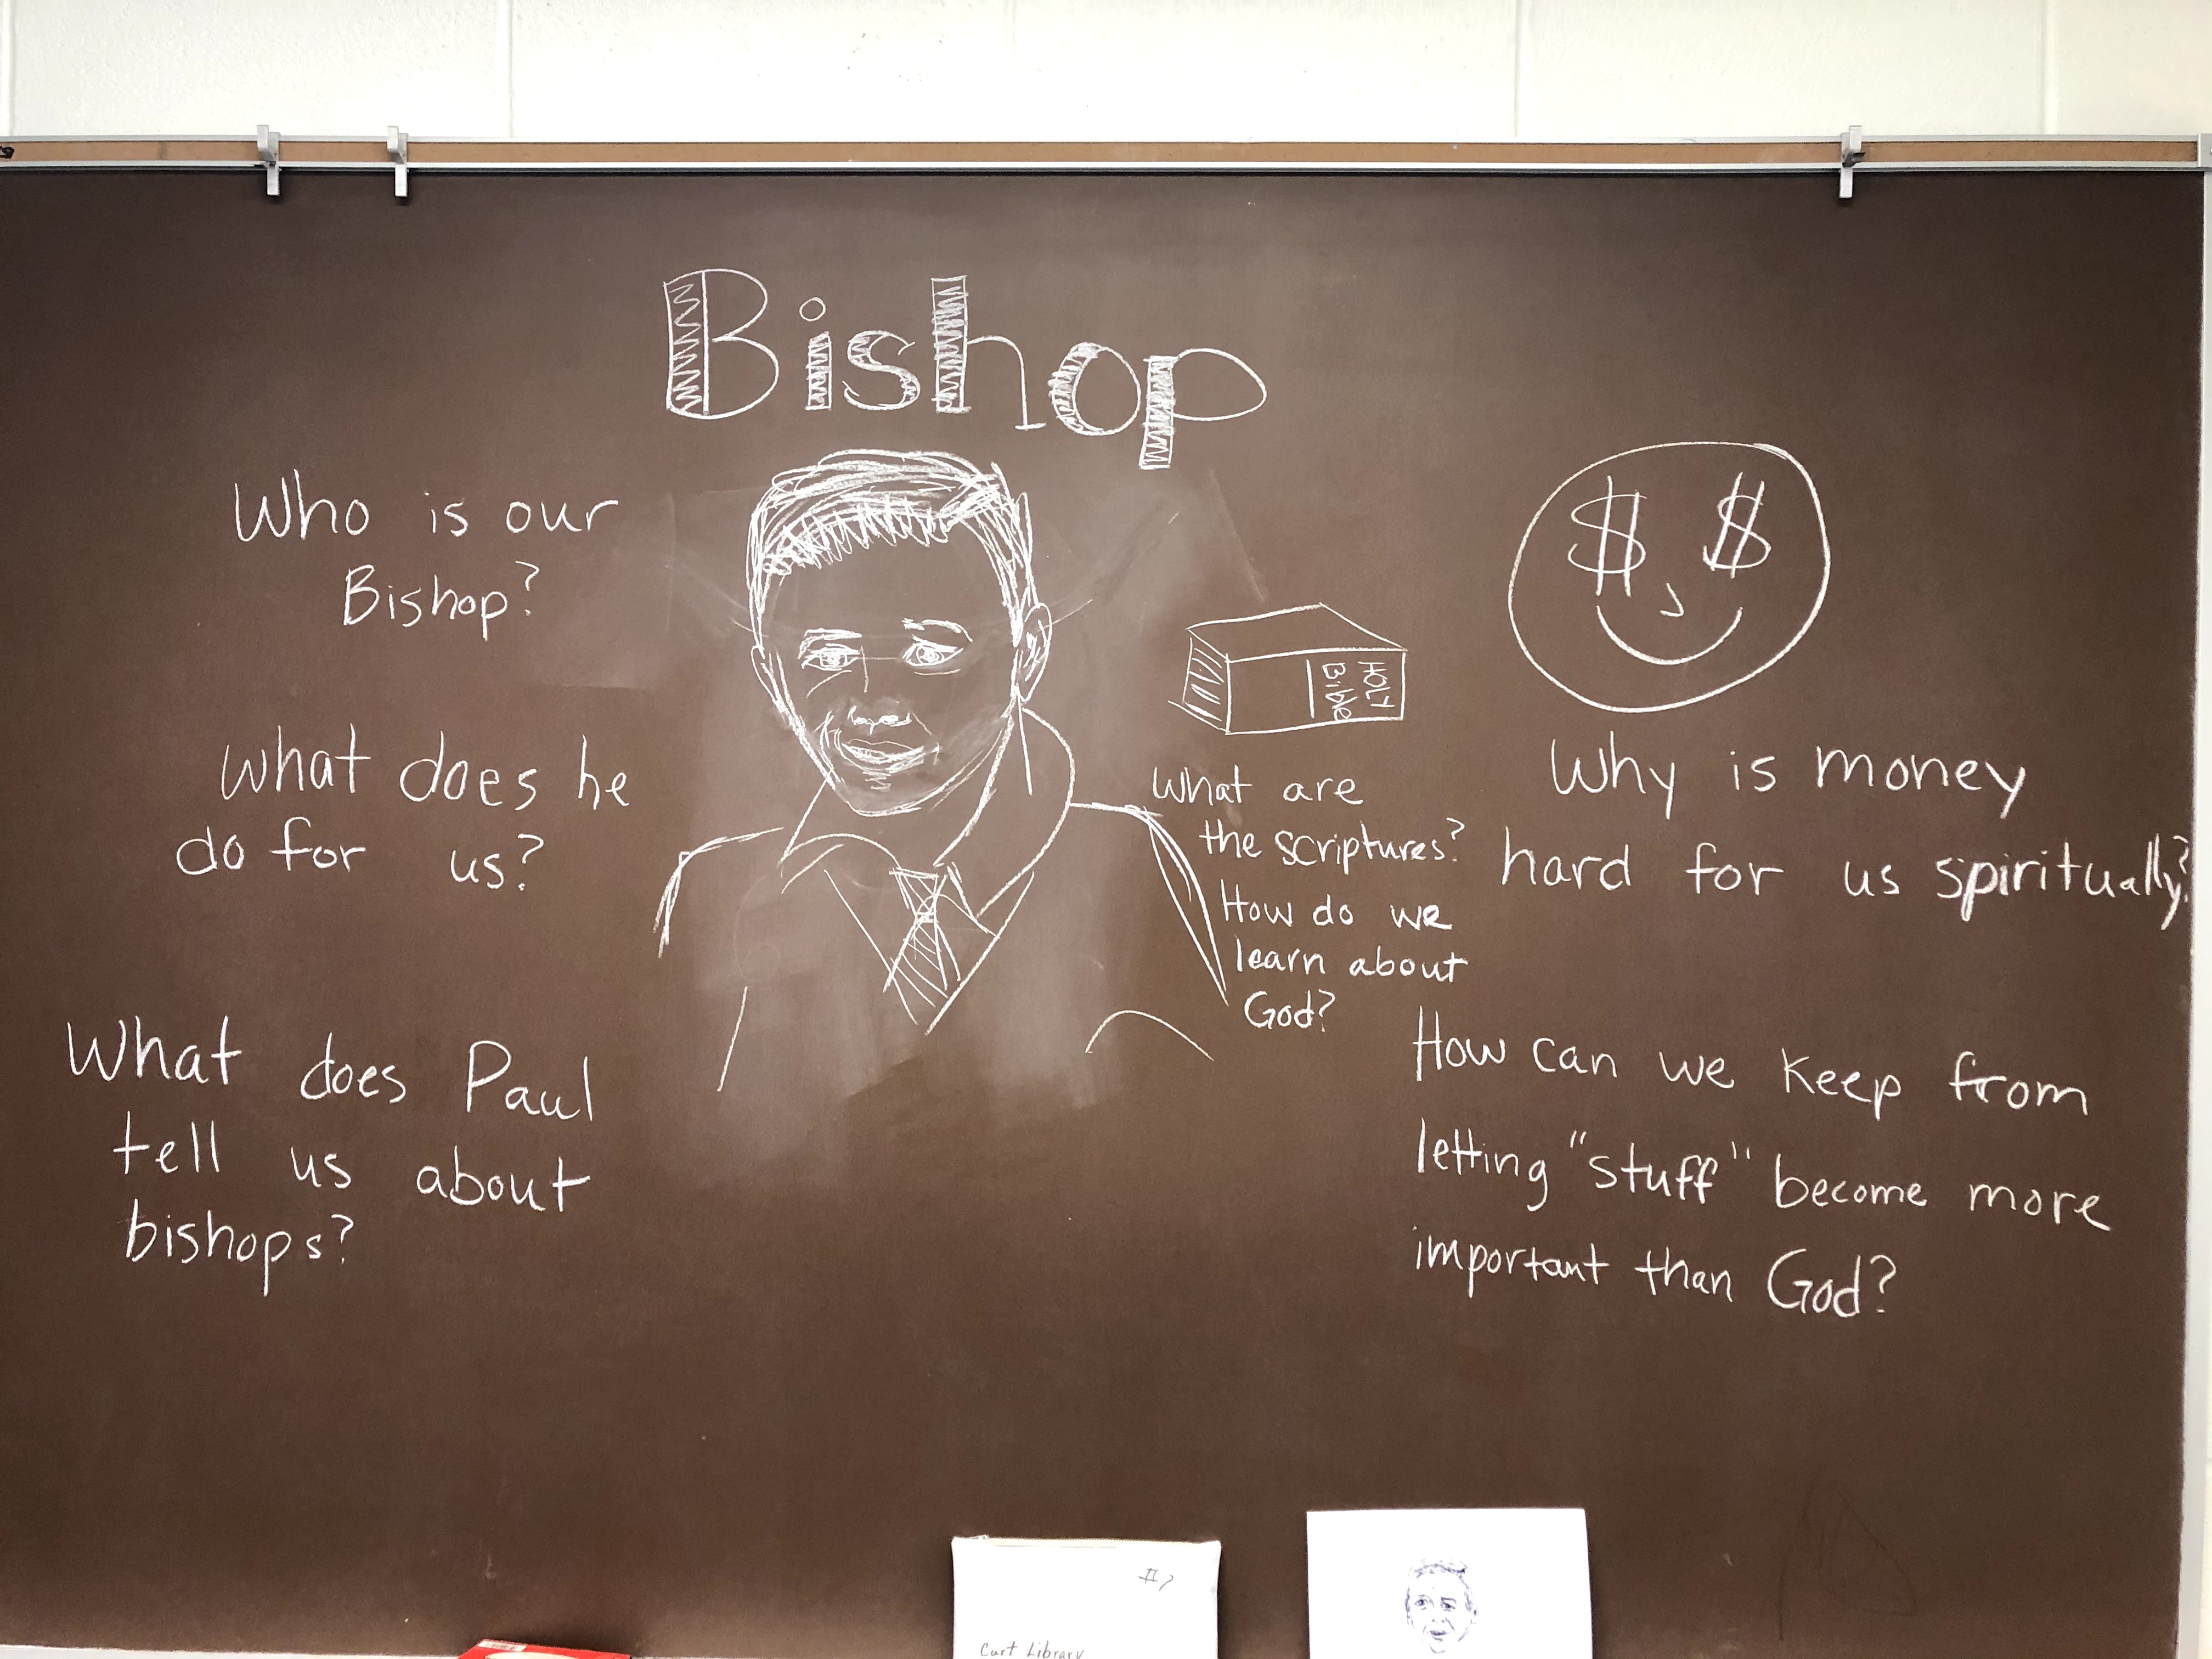 Bishop
Who is our
Bishop?
What does he
do for us?
What does Paul
tell us about
bishops?
HOLY
Bible
What are
the scriptures?
How do we
learn about
God?
$ $
Why is money
hard for us spiritually?
How can we keep from
letting "stuff" become more
important than God?
Curt Library